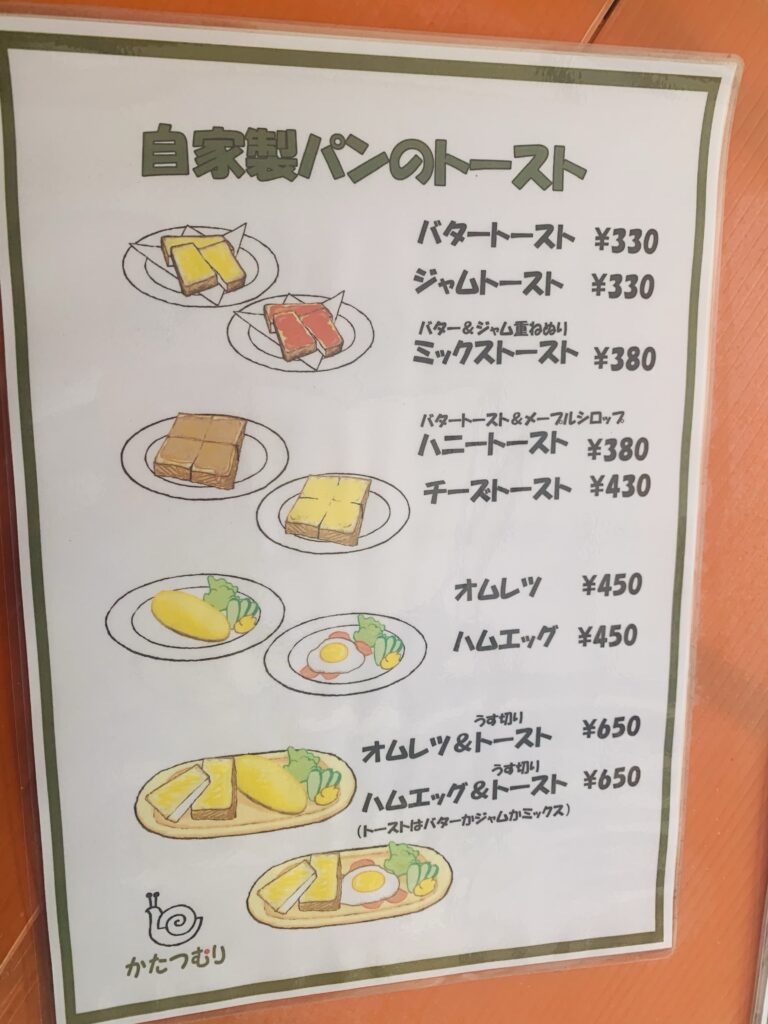 自家製パンのトースト
バタートースト ¥330
ジャムトースト ¥330
バター&ジャム重ねぬり
ミックストースト ¥380
バタートースト&メープルシロップ
ハニートースト ¥380
チーズトースト ¥430
オムレツ ¥450
ハムエッグ ¥450
うす切り
オムレツ&トースト ¥650
うす切り
ハムエッグ&トースト ¥650
(トーストはバターかジャムかミックス)
かたつむり